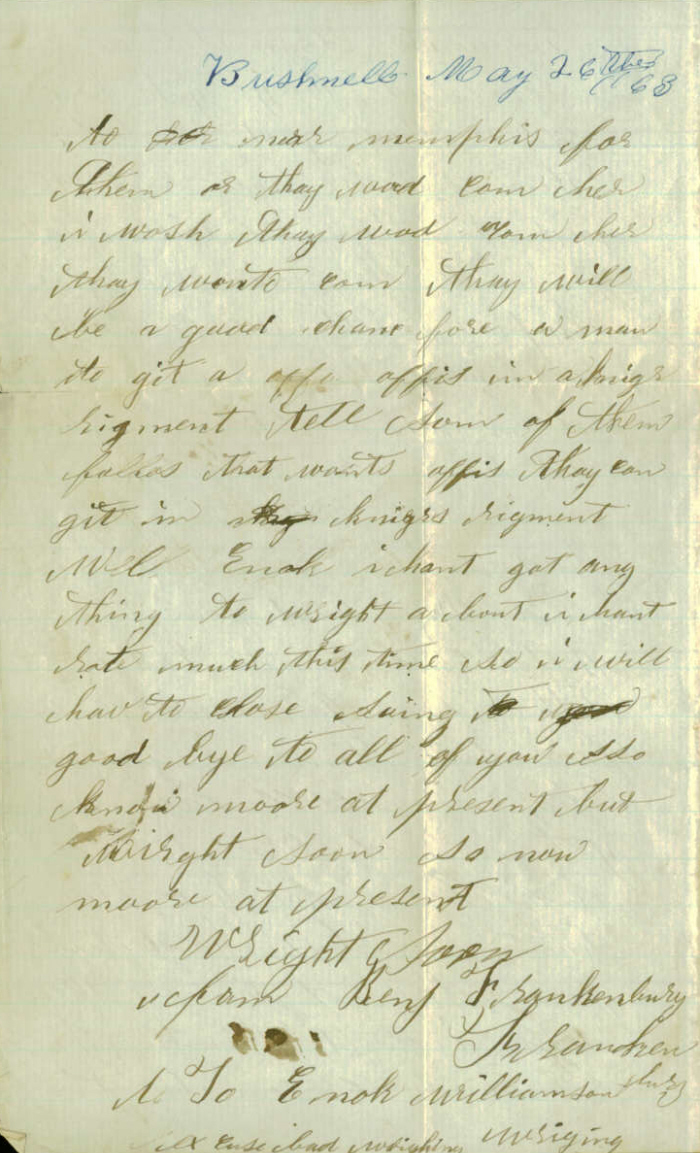 Bushnell May 26 /63
to near memphis for
them or thay wood com her
i wosh thay wod com her
thay wonte com thay will
be a good chanc fore a man
to git a offis in a
rigment tell som of them
folkes that wants offis thay can
git in rigment
Well Enok i hant got any
thing to wright about i hant
rote much this time so i will
hav to close saing to
good bye to all of you so
moore at present but
wright soon so now
moore at present
Wright Soon
from Benj Frankenbury
Frankenburg
To Enok Williamson
excuse bad wrighing wriging